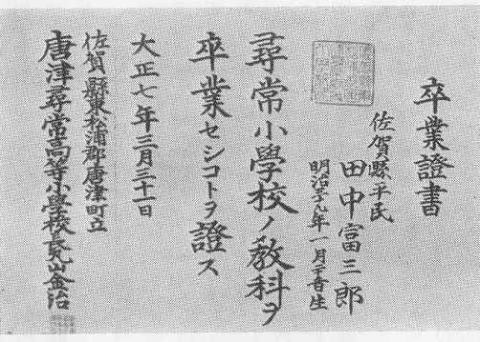 卒業證書
佐賀縣平民
田中富三郎
明治九年一月 生
尋常小學校ノ敎科ヲ
卒業セシコトヲ證ス
大正七年三月三十一日
佐賀縣東松浦郡唐津町立
唐津尋常高等小學校長 金治